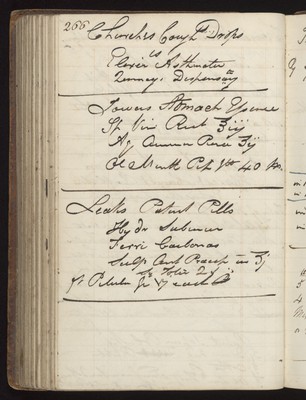 266
Churches Cough Drops
Elixir Asthmatic
Quincy's Dispensary
Towers Stomach Essence
Sp Vini Rect ℥iij
Aq Ammon Pura ʒij
Ol Menth Pip gtt 40 M.
Leaks Patent Pills
Hydr Submur
Ferri Carbonas
Sulph Ant Præcip aa ʒj
ft Pilulæ Gr V each